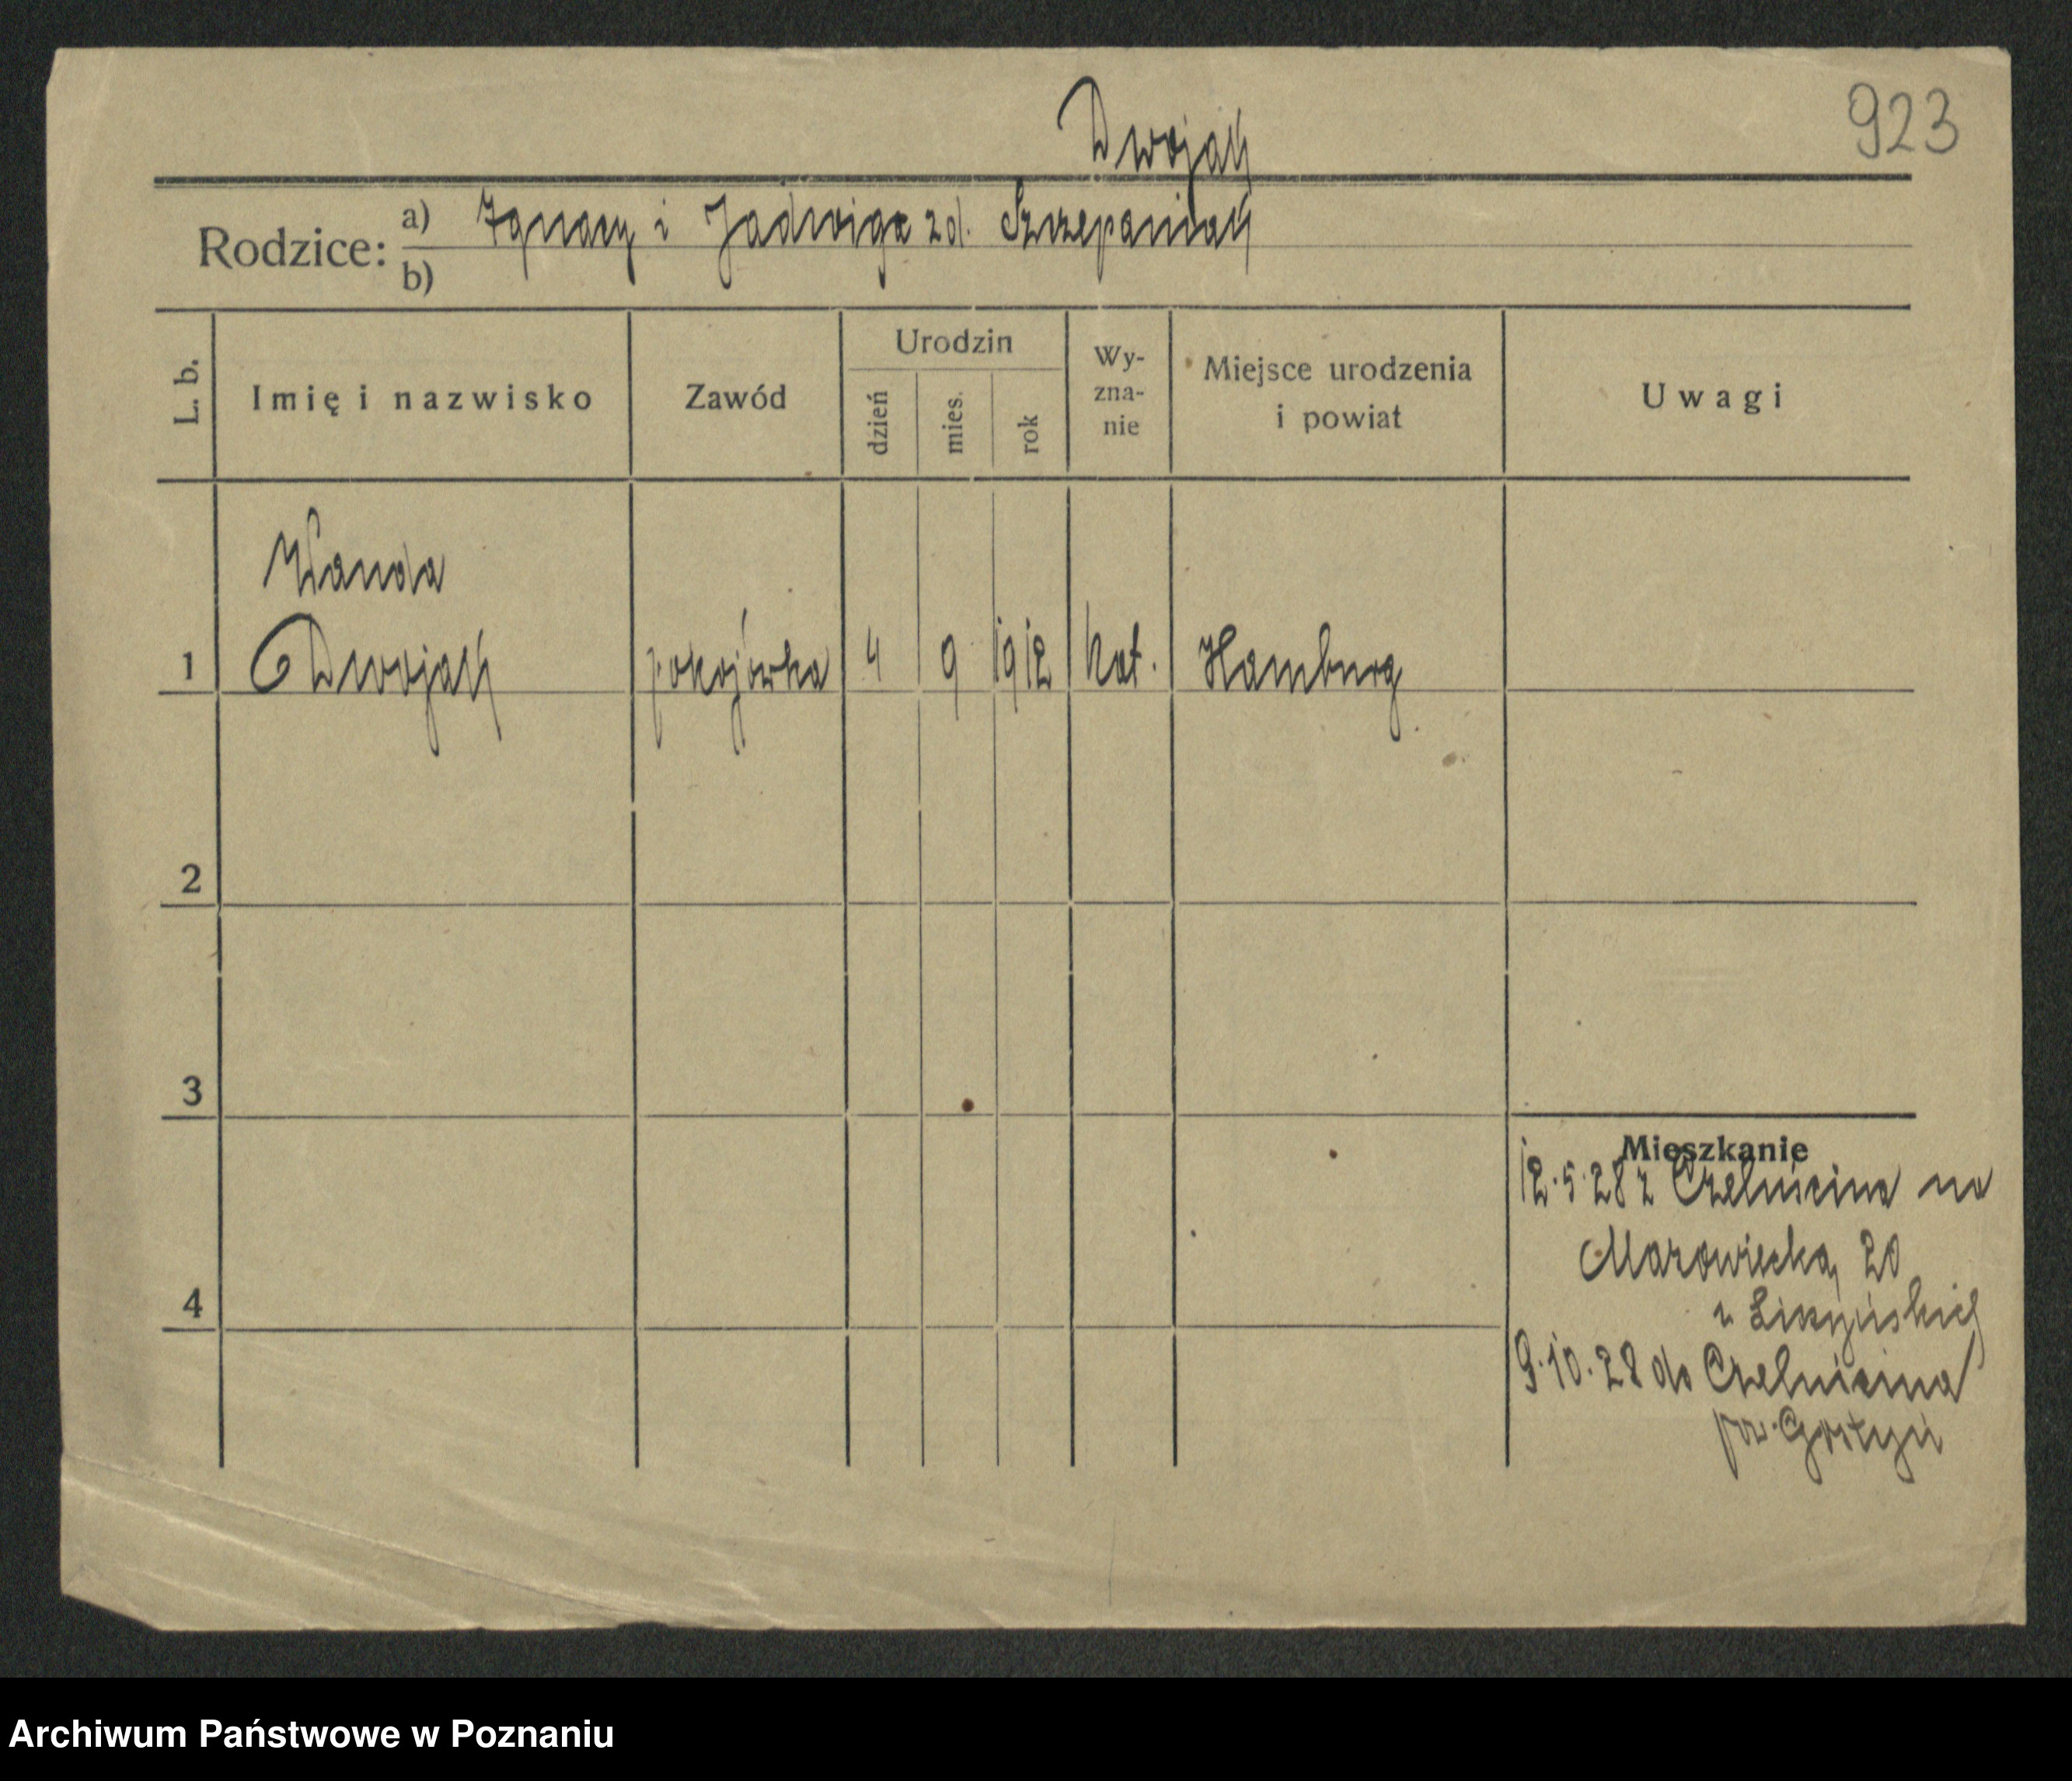 923
Dwojak
Rodzice: a) Ignacy i Jadwiga zd. Szczepaniak
b)
L. b.
Imię i nazwisko
Zawód
Urodzin
dzień
mies.
rok
Wy-
zna-
nie
Miejsce urodzenia
i powiat
Uwagi
Wanda
1 Dwojak pokojówka 4 9 1912 kat. Hamburg
2
3
4
Mieszkanie
12.5.28 z Czeluścina na
Mazowiecką 20
9.10.28 do Czeluścina
pow. Gostyń
Archiwum Państwowe w Poznaniu